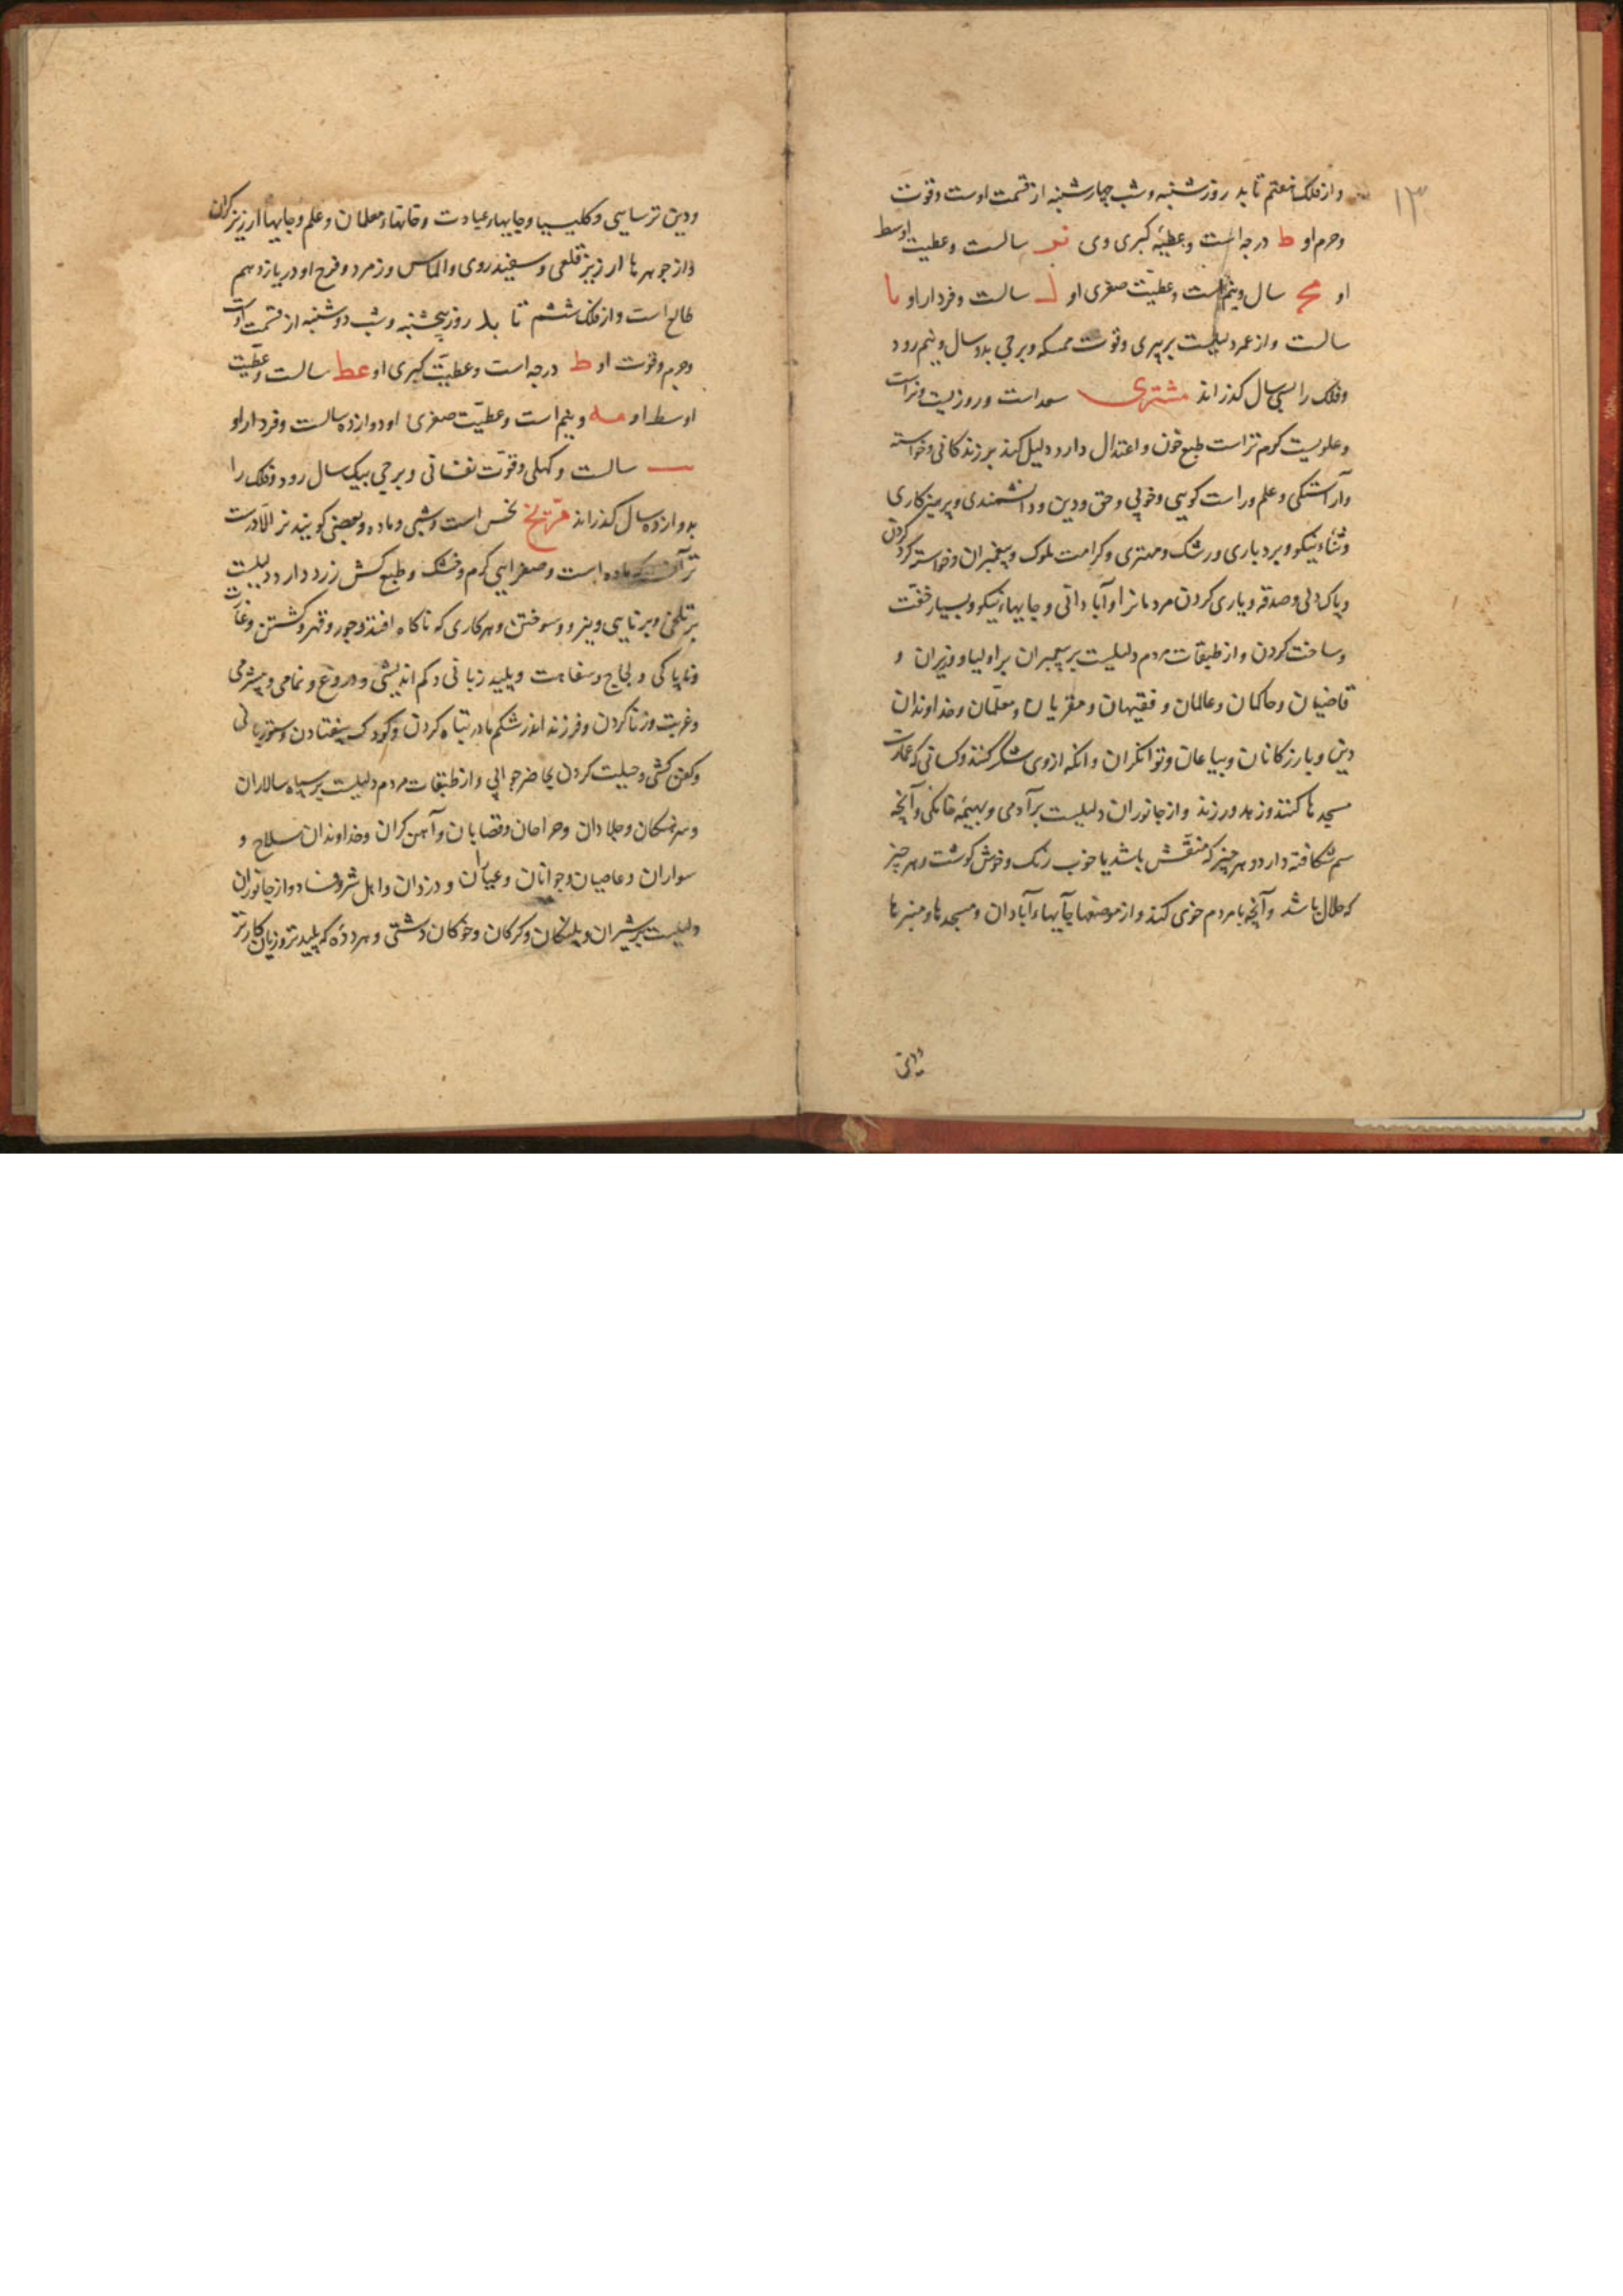 ۱۳
و از فلک هفتم تابد روز شنبه و شب چهارشنبه از قسمت اوست و قوت
و جرم او ط درجه است و عطیهٔ کبری وی نو سالست و عطیت اوسط
او مح سال و نیم است و عطیّت صغری او ل سالست و فردار او یا
سالست و از عمر دلیلست بر پیری و قوت ممسکه و برجی بدو سال و نیم رود
و فلک را بسی سال کذراند مشتری سعد است و روزیست و نر است
و علویست کرم تر است طبع خون و اعتدال دارد دلیل کند بر زندکانی و خواسته
و آراستکی و علم و راست کویی و خوبی و حق و دین و دانشمندی و پرهیزکاری
و ثناء نیکو و بردباری و رشک و مهتری و کرامت ملوک و پیغمبران و خواسته کرد کردن
و پاک دلی و صدقه و یاری کردن مردمانرا و آبادانی و جایهاء نیکو و بسیار خفت
و ساخت کردن و از طبقات مردم دلیلست بر پیمبران بر اولیا و وزیران و
قاضیان و حاکمان و عالمان و فقیهان و مقریان و معلّمان و خداوندان
دین و بازرکانان و بیاعان و توانکران و انکه از وی شکر کنند و کسانی که عمارت
مسجدها کنند و زهد ورزند و از جانوران دلیلست بر آدمی و بهیمهٔ خانکی و آنچه
سم شکافته دارد و هر چیز که منقّش باشد یا خوب رنک و خوش کوشت و هر چیز
که حلال باشد و آنچه با مردم خوی کند و از موضعها جایهاء آبادان و مسجدها و منبرها
ودین ترسایی و کلیسیا و جایهاء عبادت و خانهاء معلمان و علم و جایهاء ارزیز کران
و از جوهرها ارزیز قلعی و سفیدروی و الماس و زمرد و فرح او در یازدهم
طالع است و از فلک ششم تابد روز پنجشنبه و شب دوشنبه از قسمت اوست
و جرم و قوت او ط درجه است و عطیّت کبری او عط سالست و عطّیت
اوسط او مه و نیم است و عطیّت صغری او دوازده سالست و فردار او
سالست و کهلی و قوّت نفسانی و برجی بیک سال رود و فلک را
بدوازده سال کذراند مرّیخ نحس است و شبی و ماده و بعضی کویند نر الّا درست
تر آنست که ماده است و صفرایی کرم و خشک و طبع کش زرد دارد دلیلست
بر تلخی و برنایی و نیرو و سوختن و هر کاری که ناکاه افتد و جور و قهر و کشتن و غارت
و ناپاکی و لجاج و سفاهت و پلید زبانی و کم اندیشی و دروغ و نمامی و بیشرمی
و غربت و زنا کردن و فرزند اندر شکم مادر تباه کردن و کودک بیفتادن و ستوربانی
و کفن کشی و حیلت کردن و حاضر جوابی و از طبقات مردم دلیلست بر سپاه سالاران
و سرهنکان و جلادان و جراحان و قصابان و آهن کران و خداوندان سلاح و
سواران و عاصیان و جوانان و عیّاران و دزدان و اهل شر و فساد و از جانوران
دلیلست بر شیران و پلنکان و کرکان و خوکان دشتی و هر دده که پلیدتر و زیان کارتر